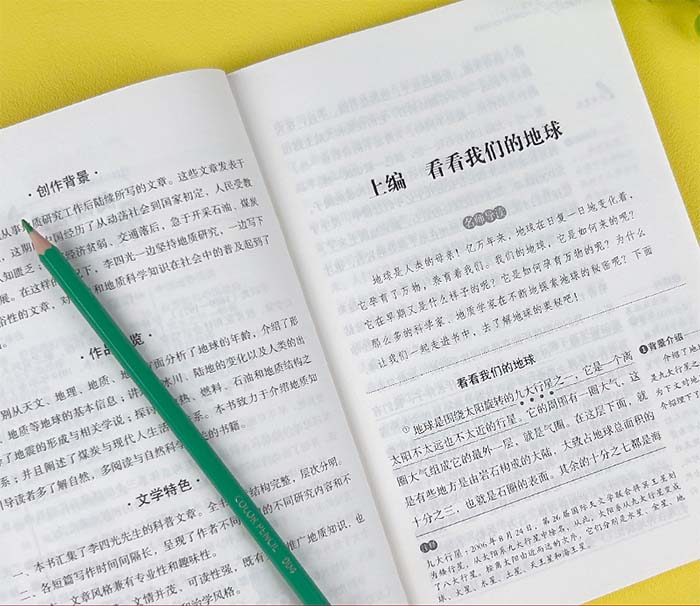 ·创作背景·
从事
质研究工作后陆续所写的文章。这些文章发表于
,这期
国经历了从动荡社会到国家初定,人民受教
知匮乏;
经济贫弱,交通落后,急于开采石油、煤炭
展。在这样
况下,李四光一边坚持地质研究,一边写下
俗性的文章,对
和地质科学知识在社会中的普及起到了
·作品
览·
别从天文、地理、地质、地
面分析了地球的年龄,介绍了形
、地质等地球的基本信息;讲
冰川、陆地的变化以及人类的出
了地震的形成与相关学说;探讨
热、燃料、石油和地质结构之
系;并且阐述了煤炭与现代人生活
系。本书致力于介绍地质知
引导读者多了解自然,多阅读与自然科学
的书籍。
·文学特色·
一、本书汇集了李四光先生的科普文章。全书
结构完整,层次分明。
二、各短篇写作时间间隔长,呈现了作者不同
的不同研究内容和不
文章风格兼有专业性和趣味性。
文情并茂,可读性强,既有
推广地质知识,也
和治学风格。
上编 看看我们的地球
名师导读
地球是人类的母亲!亿万年来,地球在日复一日地变化着,
它孕育了万物,养育着我们。我们的地球,它是如何来的呢?
它在早期又是什么样子的呢?它是如何孕育万物的呢?为什么
那么多的科学家、地质学家在不断地探索地球的秘密呢?下面
让我们一起走进书中,去了解地球的奥秘吧!
看看我们的地球
①地球是围绕太阳旋转的九大行星之一,它是一个离
太阳不太远也不太近的行星。它的周围有一圈大气,这
圈大气组成它的最外一层,就是气圈。在这层下面,就
是有些地方是由岩石构成的大陆,大致占地球总面积的
十分之三,也就是石圈的表面。其余的十分之七都是海
❶背景介绍
介绍了地
是九大行星之
为下文对地
介绍埋下了
注释
九大行星:2006年8月24日,第26届国际天文学联合会将冥王星划
为矮行星,从太阳系九大行星中除名。从此,太阳系从九大行星变成
了八大行星,按离太阳由近而远的次序,它们分别是水星、金星、地
球、火星、木星、土星、天王星和海王星。
COLOR PENCIL